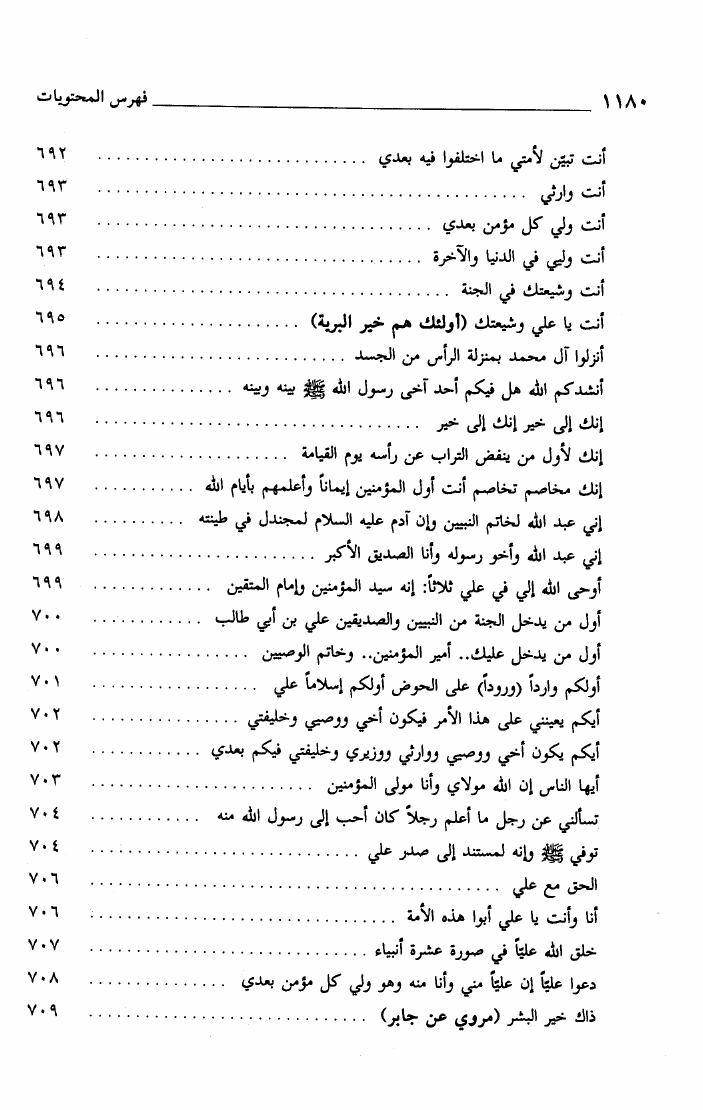 ١١٨٠ فهرس المحتويات
أنت تبيّن لأمتي ما اختلفوا فيه بعدي ٦٩٢
أنت وارثي ٦٩٣
أنت ولي كل مؤمن بعدي ٦٩٣
أنت وليي في الدنيا والآخرة ٦٩٣
أنت وشيعتك في الجنة ٦٩٤
أنت يا علي وشيعتك (أولئك هم خير البرية) ٦٩٥
أنزلوا آل محمد بمنزلة الرأس من الجسد ٦٩٦
أنشدكم الله هل فيكم أحد آخى رسول الله ﷺ بينه وبينه ٦٩٦
إنك إلى خير إنك إلى خير ٦٩٦
إنك لأول من ينفض التراب عن رأسه يوم القيامة ٦٩٧
إنك مخاصم تخاصم أنت أول المؤمنين إيماناً وأعلمهم بأيام الله ٦٩٧
إني عبد الله لخاتم النبيين وإن آدم عليه السلام لمجندل في طينته ٦٩٨
إني عبد الله وأخو رسوله وأنا الصديق الأكبر ٦٩٩
أوحى الله إلي في علي ثلاثاً: إنه سيد المؤمنين وإمام المتقين ٦٩٩
أول من يدخل الجنة من النبيين والصديقين علي بن أبي طالب ٧٠٠
أول من يدخل عليك.. أمير المؤمنين.. وخاتم الوصيين ٧٠٠
أولكم وارداً (وروداً) على الحوض أولكم إسلاماً علي ٧٠١
أيكم يعينني على هذا الأمر فيكون أخي ووصيي وخليفتي ٧٠٢
أيكم يكون أخي ووصيي ووارثي ووزيري وخليفتي فيكم بعدي ٧٠٢
أيها الناس إن الله مولاي وأنا مولى المؤمنين ٧٠٣
تسألني عن رجل ما أعلم رجلاً كان أحب إلى رسول الله منه ٧٠٤
توفي ﷺ وإنه لمستند إلى صدر علي ٧٠٤
الحق مع علي ٧٠٦
أنا وأنت يا علي أبوا هذه الأمة ٧٠٦
خلق الله عليّاً في صورة عشرة أنبياء ٧٠٧
دعوا عليّاً إن عليّاً مني وأنا منه وهو ولي كل مؤمن بعدي ٧٠٨
ذاك خير البشر (مروي عن جابر) ٧٠٩